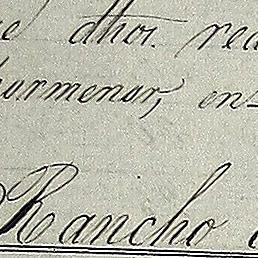 dhos. rea
urmenor, en
Rancho